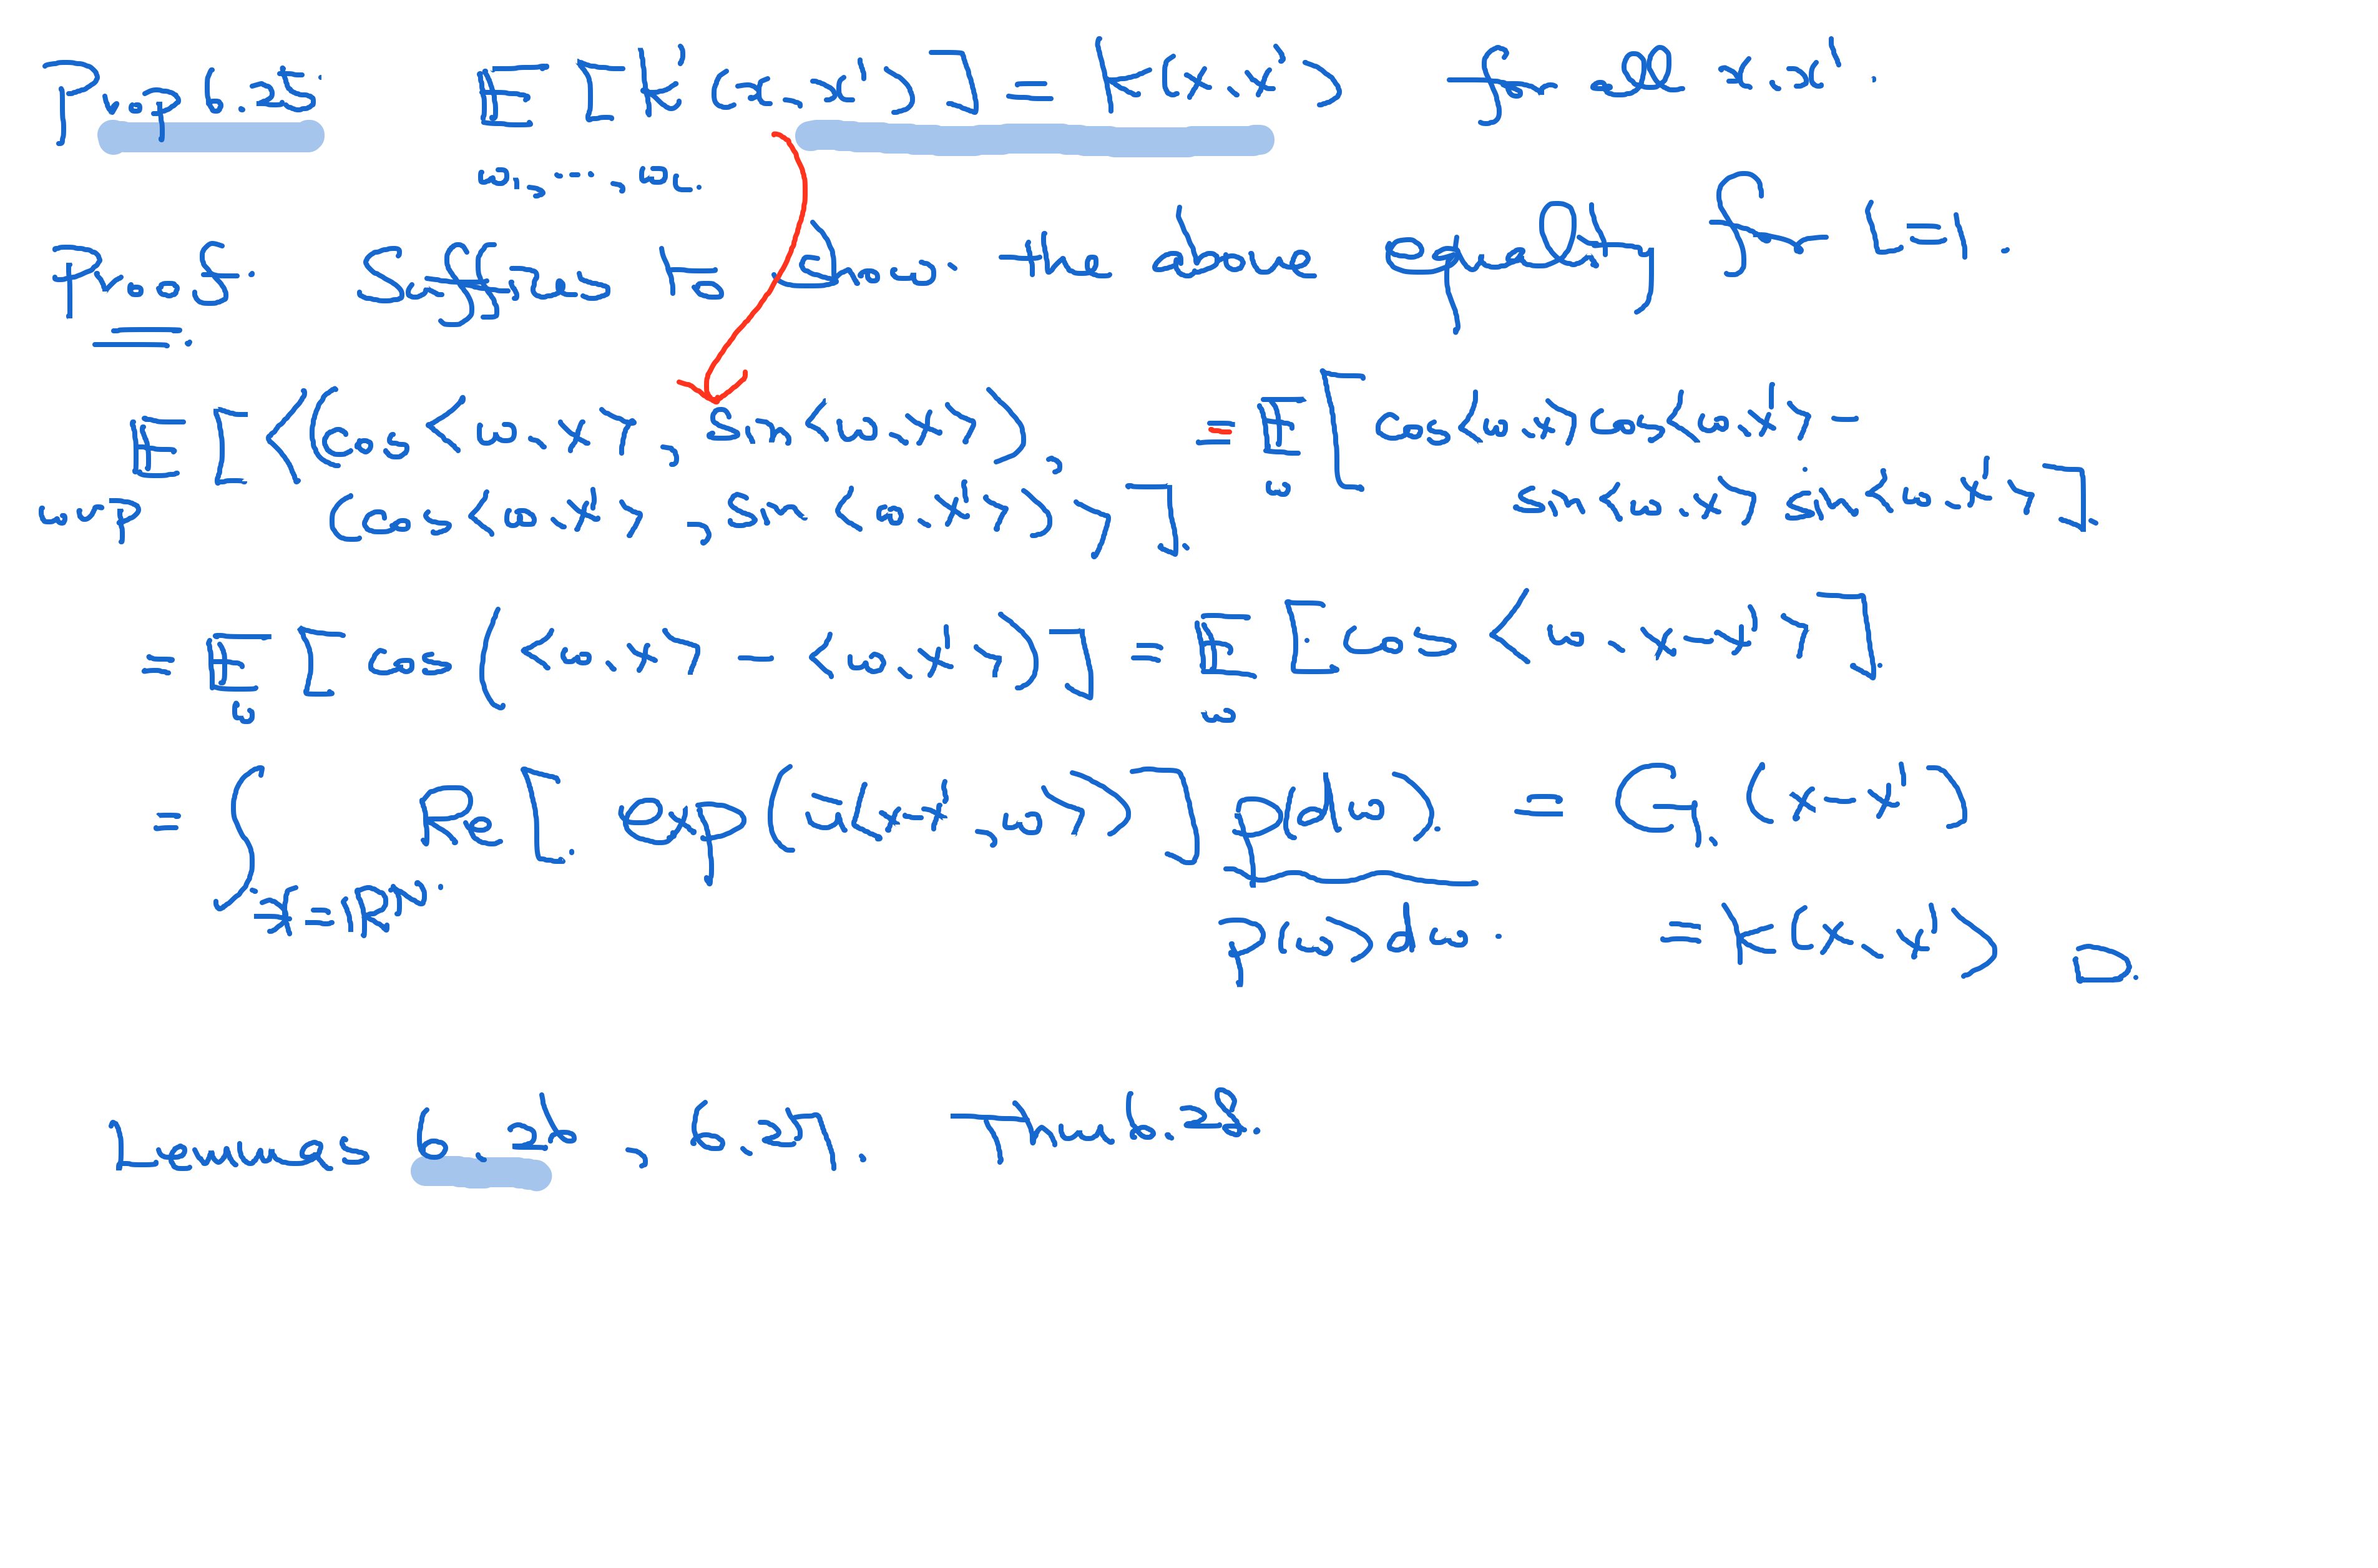 Prop 6.25. E [K'(x,x')] = K(x,x') for all x,x'.
ω₁, ..., ω_L.
Proof. Suffices to show the above equality for L=1.
E [⟨(cos⟨ω,x⟩, sin⟨ω,x⟩), = E [cos⟨ω,x⟩ cos⟨ω,x'⟩ −
ω~P (cos⟨ω,x'⟩, sin⟨ω,x'⟩)⟩]. ω sin⟨ω,x⟩ sin⟨ω,x'⟩].
= E [cos(⟨ω,x⟩ − ⟨ω,x'⟩)] = E [cos⟨ω,x−x'⟩].
ω ω
= ∫ Re[exp(i⟨x−x',ω⟩)] p(dω). = G(x−x')
X=ℝᴺ. p(ω)dω. = K(x,x') □.
Lemmas 6.26, 6.27. Thm 6.28.